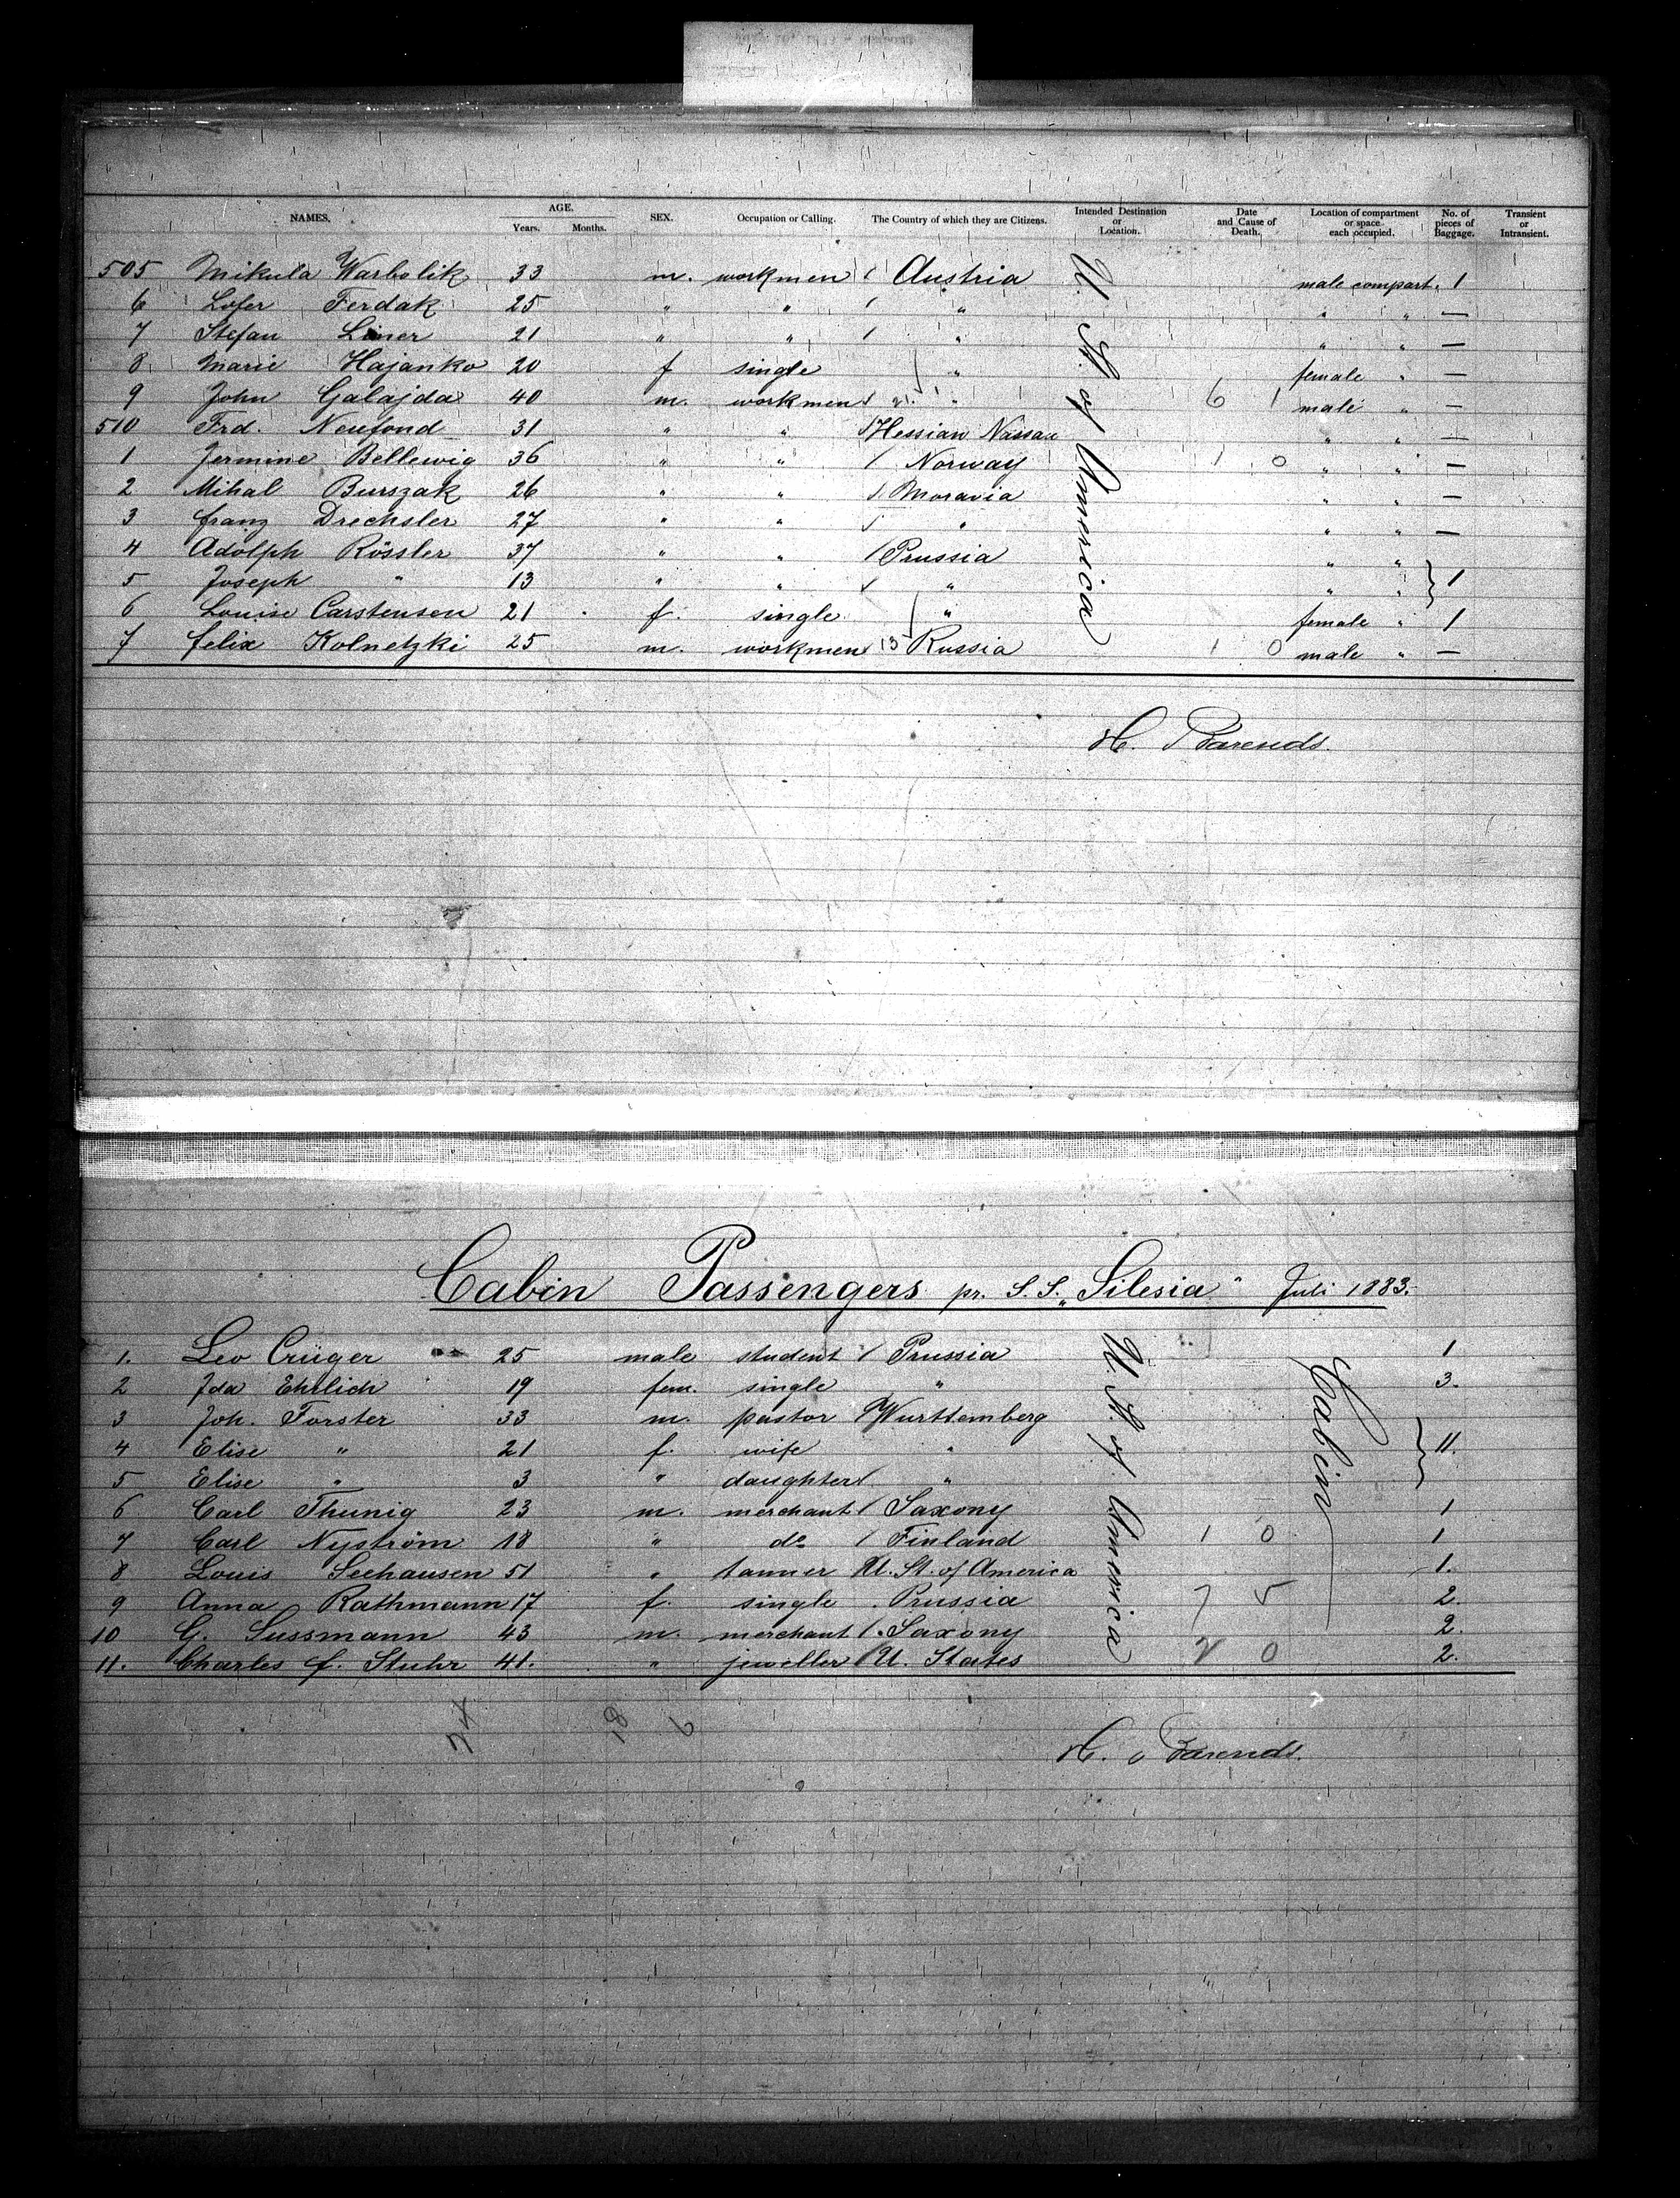 NAMES. AGE. Years. Months. SEX. Occupation or Calling. The Country of which they are Citizens. Intended Destination or Location. Date and Cause of Death. Location of compartment or space each occupied. No. of pieces of Baggage. Transient or Intransient.
505 Mikula Warbolik 33 m. workmen / Austria male compart. 1
6 Lofer Ferdak 25 " " / " " " —
7 Stefan Liner 21 " " / " " " —
8 Marie Hajanko 20 f single " female " —
9 John Galajda 40 m. workmen / 21. " 6 1 male " —
510 Frd. Neufond 31 " " / Hessian Nassau " " —
1 Jermine Bellewig 36 " " / Norway 1 0 " " —
2 Mihal Burszak 26 " " / Moravia " " —
3 Franz Drechsler 27 " " / " " " —
4 Adolph Rössler 37 " " / Prussia " "
5 Joseph " 13 " " / " " " } 1
6 Louise Carstensen 21 f. single " female " 1
7 Felix Kolnetzki 25 m. workmen 13 Russia 1 0 male " —
U. St. of America
H. Barends.
Cabin Passengers pr. S. S. „Silesia" Juli 1883.
1. Leo Crüger 25 male student / Prussia 1
2 Ida Ehrlich 19 fem. single " 3.
3 Joh. Forster 33 m. pastor / Württemberg
4 Elise " 21 f. wife " } 11.
5 Elise " 3 " daughter / "
6 Carl Thunig 23 m. merchant / Saxony 1
7 Carl Nyström 18 " do / Finland 1 0 1
8 Louis Seehausen 51 " tanner U. St. of America 1.
9 Anna Rathmann 17 f. single . Prussia 7 5 2.
10 G. Sussmann 43 m. merchant / . Saxony 2.
11. Charles F. Stuhr 41. " jeweller / U. States 2 0 2.
U. St. of America
Cabin
18 6
H. Barends.